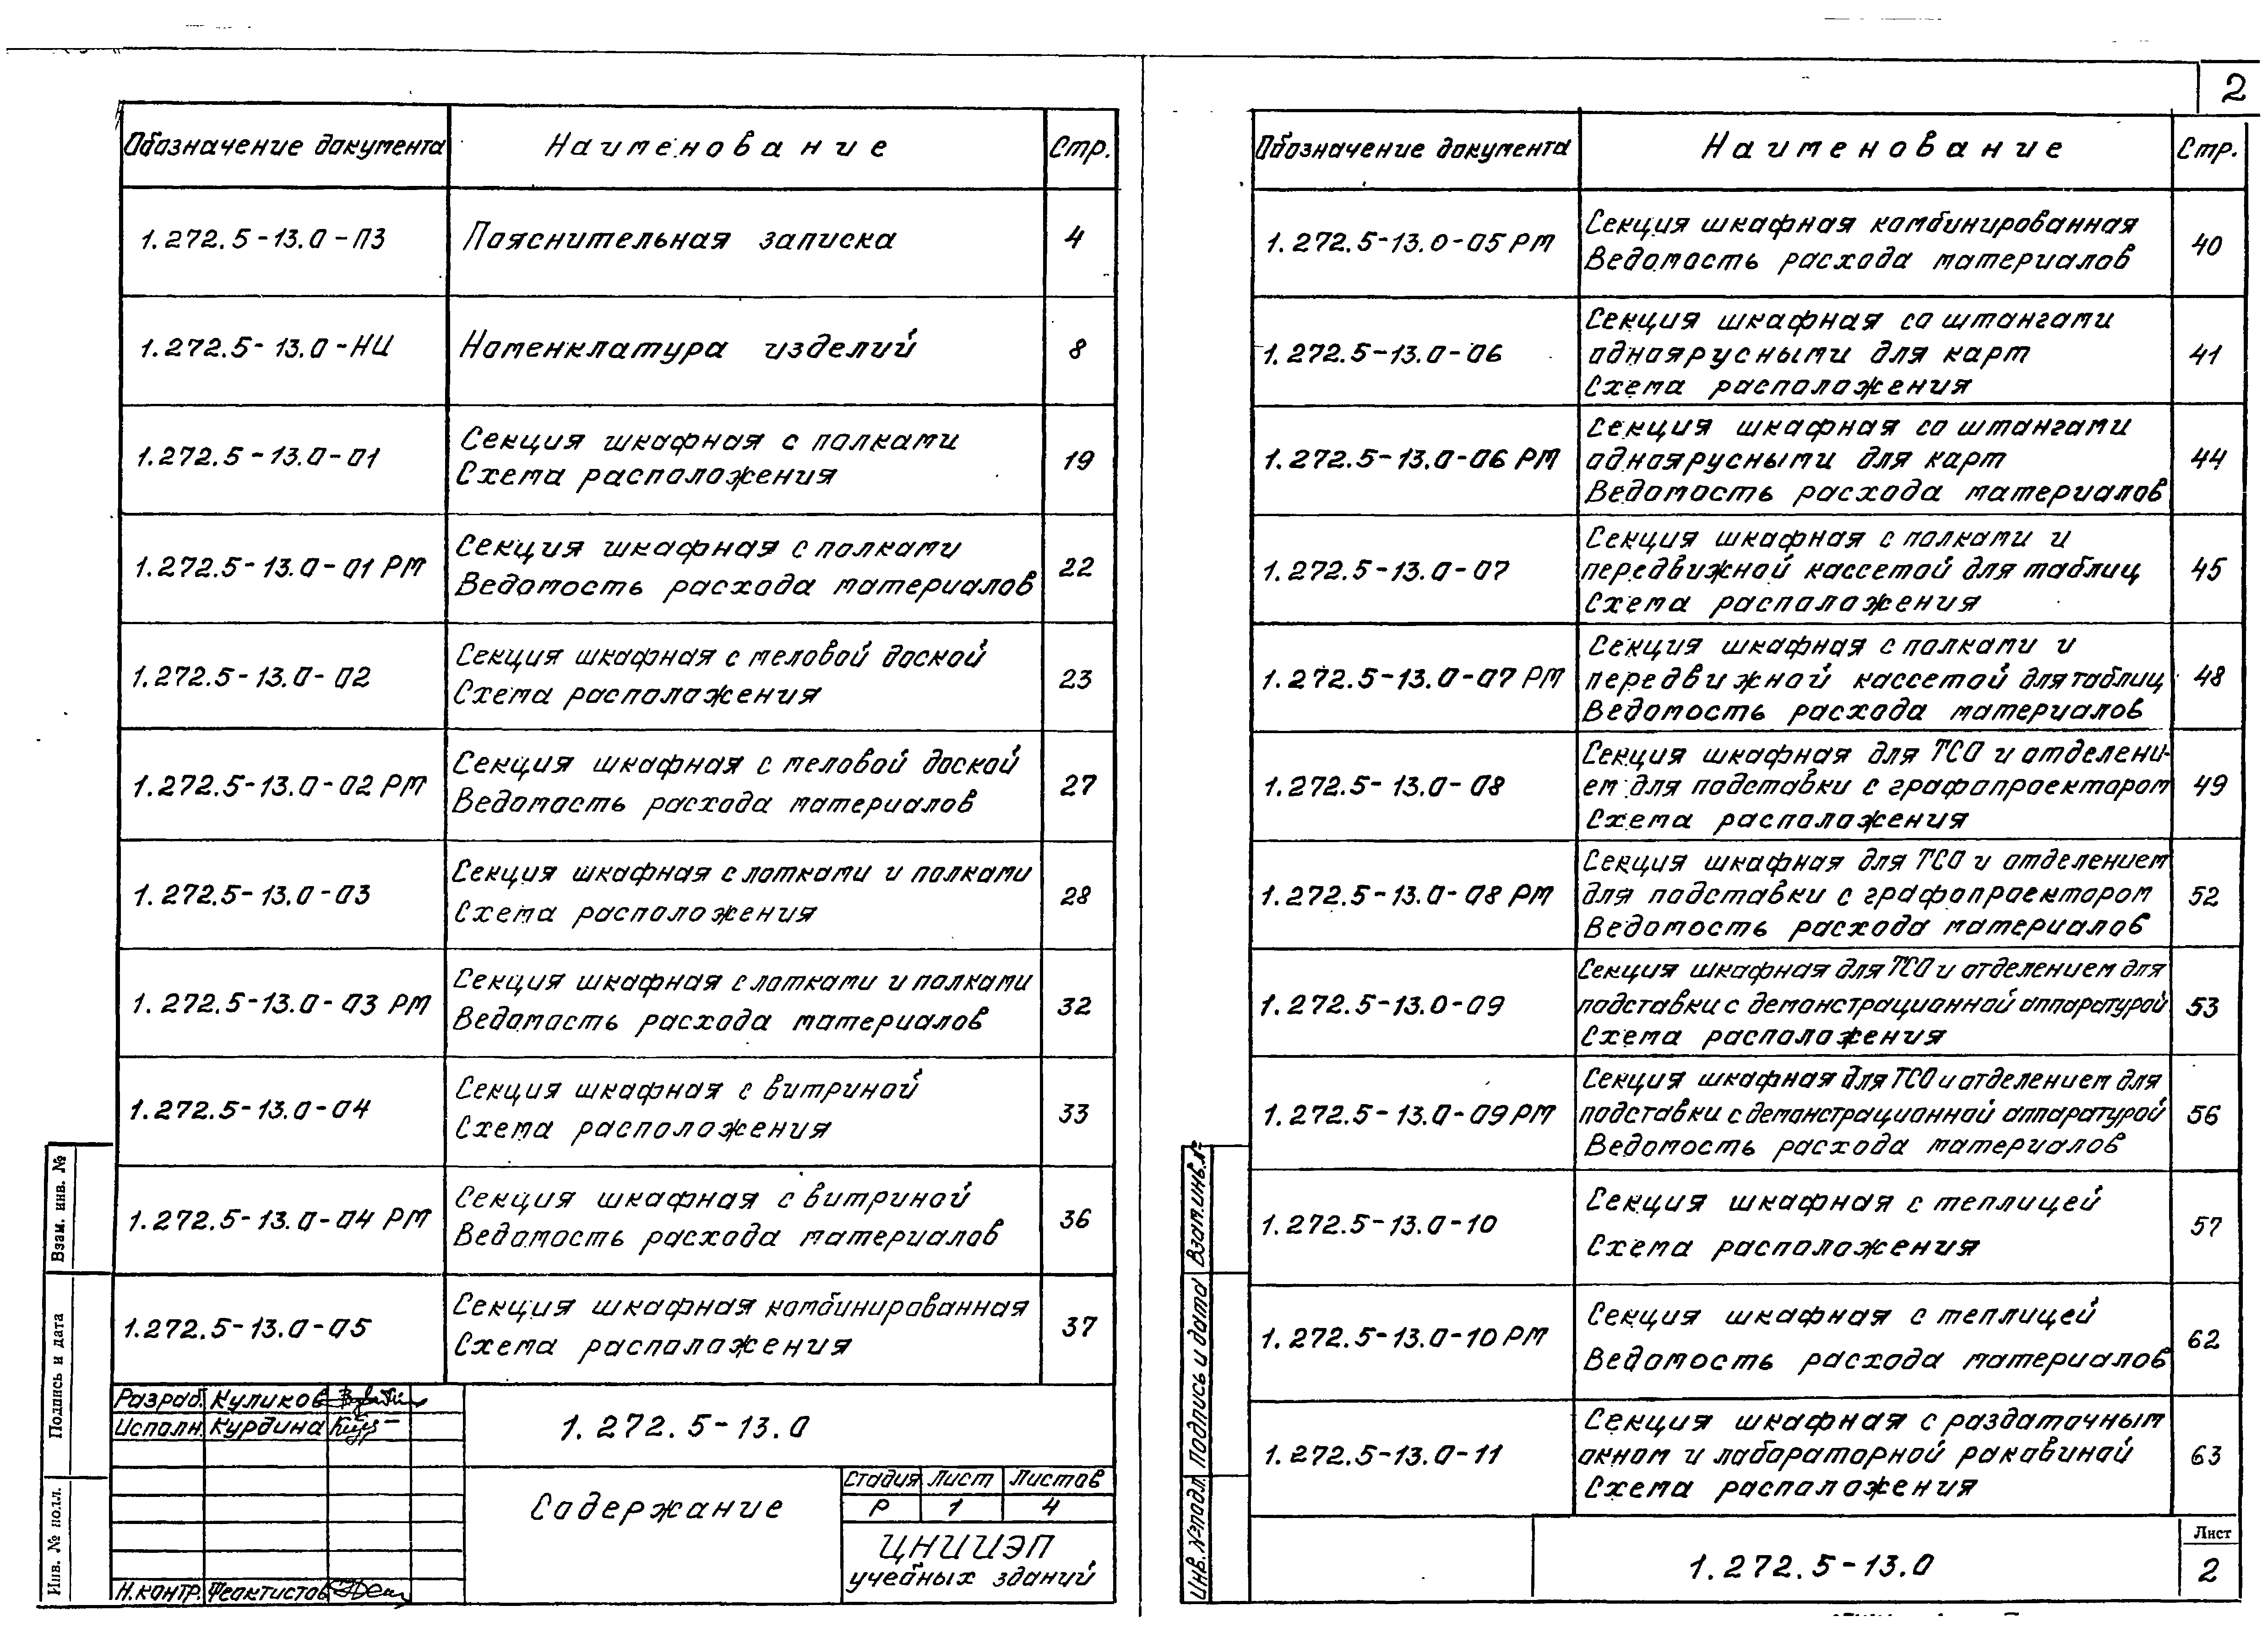 2
Обозначение документа Наименование Стр.
1.272.5-13.0-ПЗ Пояснительная записка 4
1.272.5-13.0-НИ Номенклатура изделий 8
1.272.5-13.0-01 Секция шкафная с полками
Схема расположения 19
1.272.5-13.0-01 РМ Секция шкафная с полками
Ведомость расхода материалов 22
1.272.5-13.0-02 Секция шкафная с меловой доской
Схема расположения 23
1.272.5-13.0-02 РМ Секция шкафная с меловой доской
Ведомость расхода материалов 27
1.272.5-13.0-03 Секция шкафная с лотками и полками
Схема расположения 28
1.272.5-13.0-03 РМ Секция шкафная с лотками и полками
Ведомость расхода материалов 32
1.272.5-13.0-04 Секция шкафная с витриной
Схема расположения 33
1.272.5-13.0-04 РМ Секция шкафная с витриной
Ведомость расхода материалов 36
1.272.5-13.0-05 Секция шкафная комбинированная
Схема расположения 37
Разраб. Куликов
Исполн. Курдина
Н.контр. Феоктистов
1.272.5-13.0
Содержание
Стадия Лист Листов
Р 1 4
ЦНИИЭП
учебных зданий
Взам. инв. №
Подпись и дата
Инв. № подл.
Обозначение документа Наименование Стр.
1.272.5-13.0-05 РМ Секция шкафная комбинированная
Ведомость расхода материалов 40
1.272.5-13.0-06 Секция шкафная со штангами
одноярусными для карт
Схема расположения 41
1.272.5-13.0-06 РМ Секция шкафная со штангами
одноярусными для карт
Ведомость расхода материалов 44
1.272.5-13.0-07 Секция шкафная с полками и
передвижной кассетой для таблиц
Схема расположения 45
1.272.5-13.0-07 РМ Секция шкафная с полками и
передвижной кассетой для таблиц
Ведомость расхода материалов 48
1.272.5-13.0-08 Секция шкафная для ТСО и отделени-
ем для подставки с графопроектором
Схема расположения 49
1.272.5-13.0-08 РМ Секция шкафная для ТСО и отделением
для подставки с графопроектором
Ведомость расхода материалов 52
1.272.5-13.0-09 Секция шкафная для ТСО и отделением для
подставки с демонстрационной аппаратурой
Схема расположения 53
1.272.5-13.0-09 РМ Секция шкафная для ТСО и отделением для
подставки с демонстрационной аппаратурой
Ведомость расхода материалов 56
1.272.5-13.0-10 Секция шкафная с теплицей
Схема расположения 57
1.272.5-13.0-10 РМ Секция шкафная с теплицей
Ведомость расхода материалов 62
1.272.5-13.0-11 Секция шкафная с раздаточным
окном и лабораторной раковиной
Схема расположения 63
1.272.5-13.0
Лист
2
Взам.инв.№
Подпись и дата
Инв.№подл.